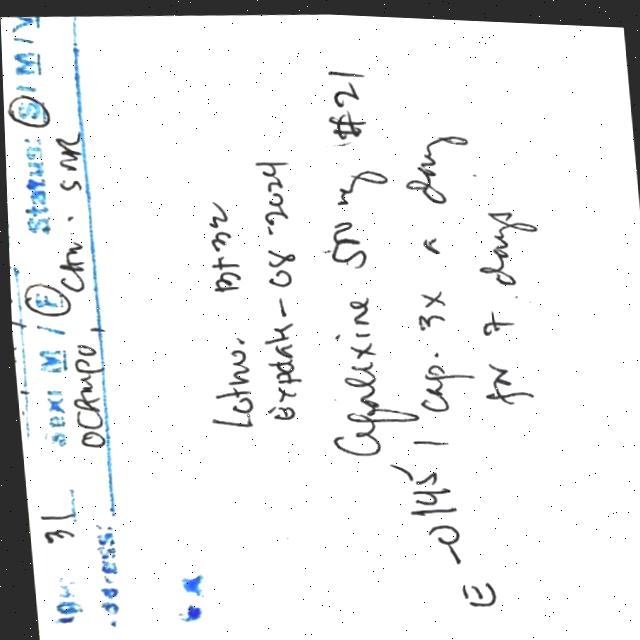 Age: 31 Sex: M / F Status: S / M / W
Address: OCAMPO,
Rx
Lot no. B132
Exp date - 08-2024
Cefalexine 500 mg #21
1 cap. 3x a day
for 7 days